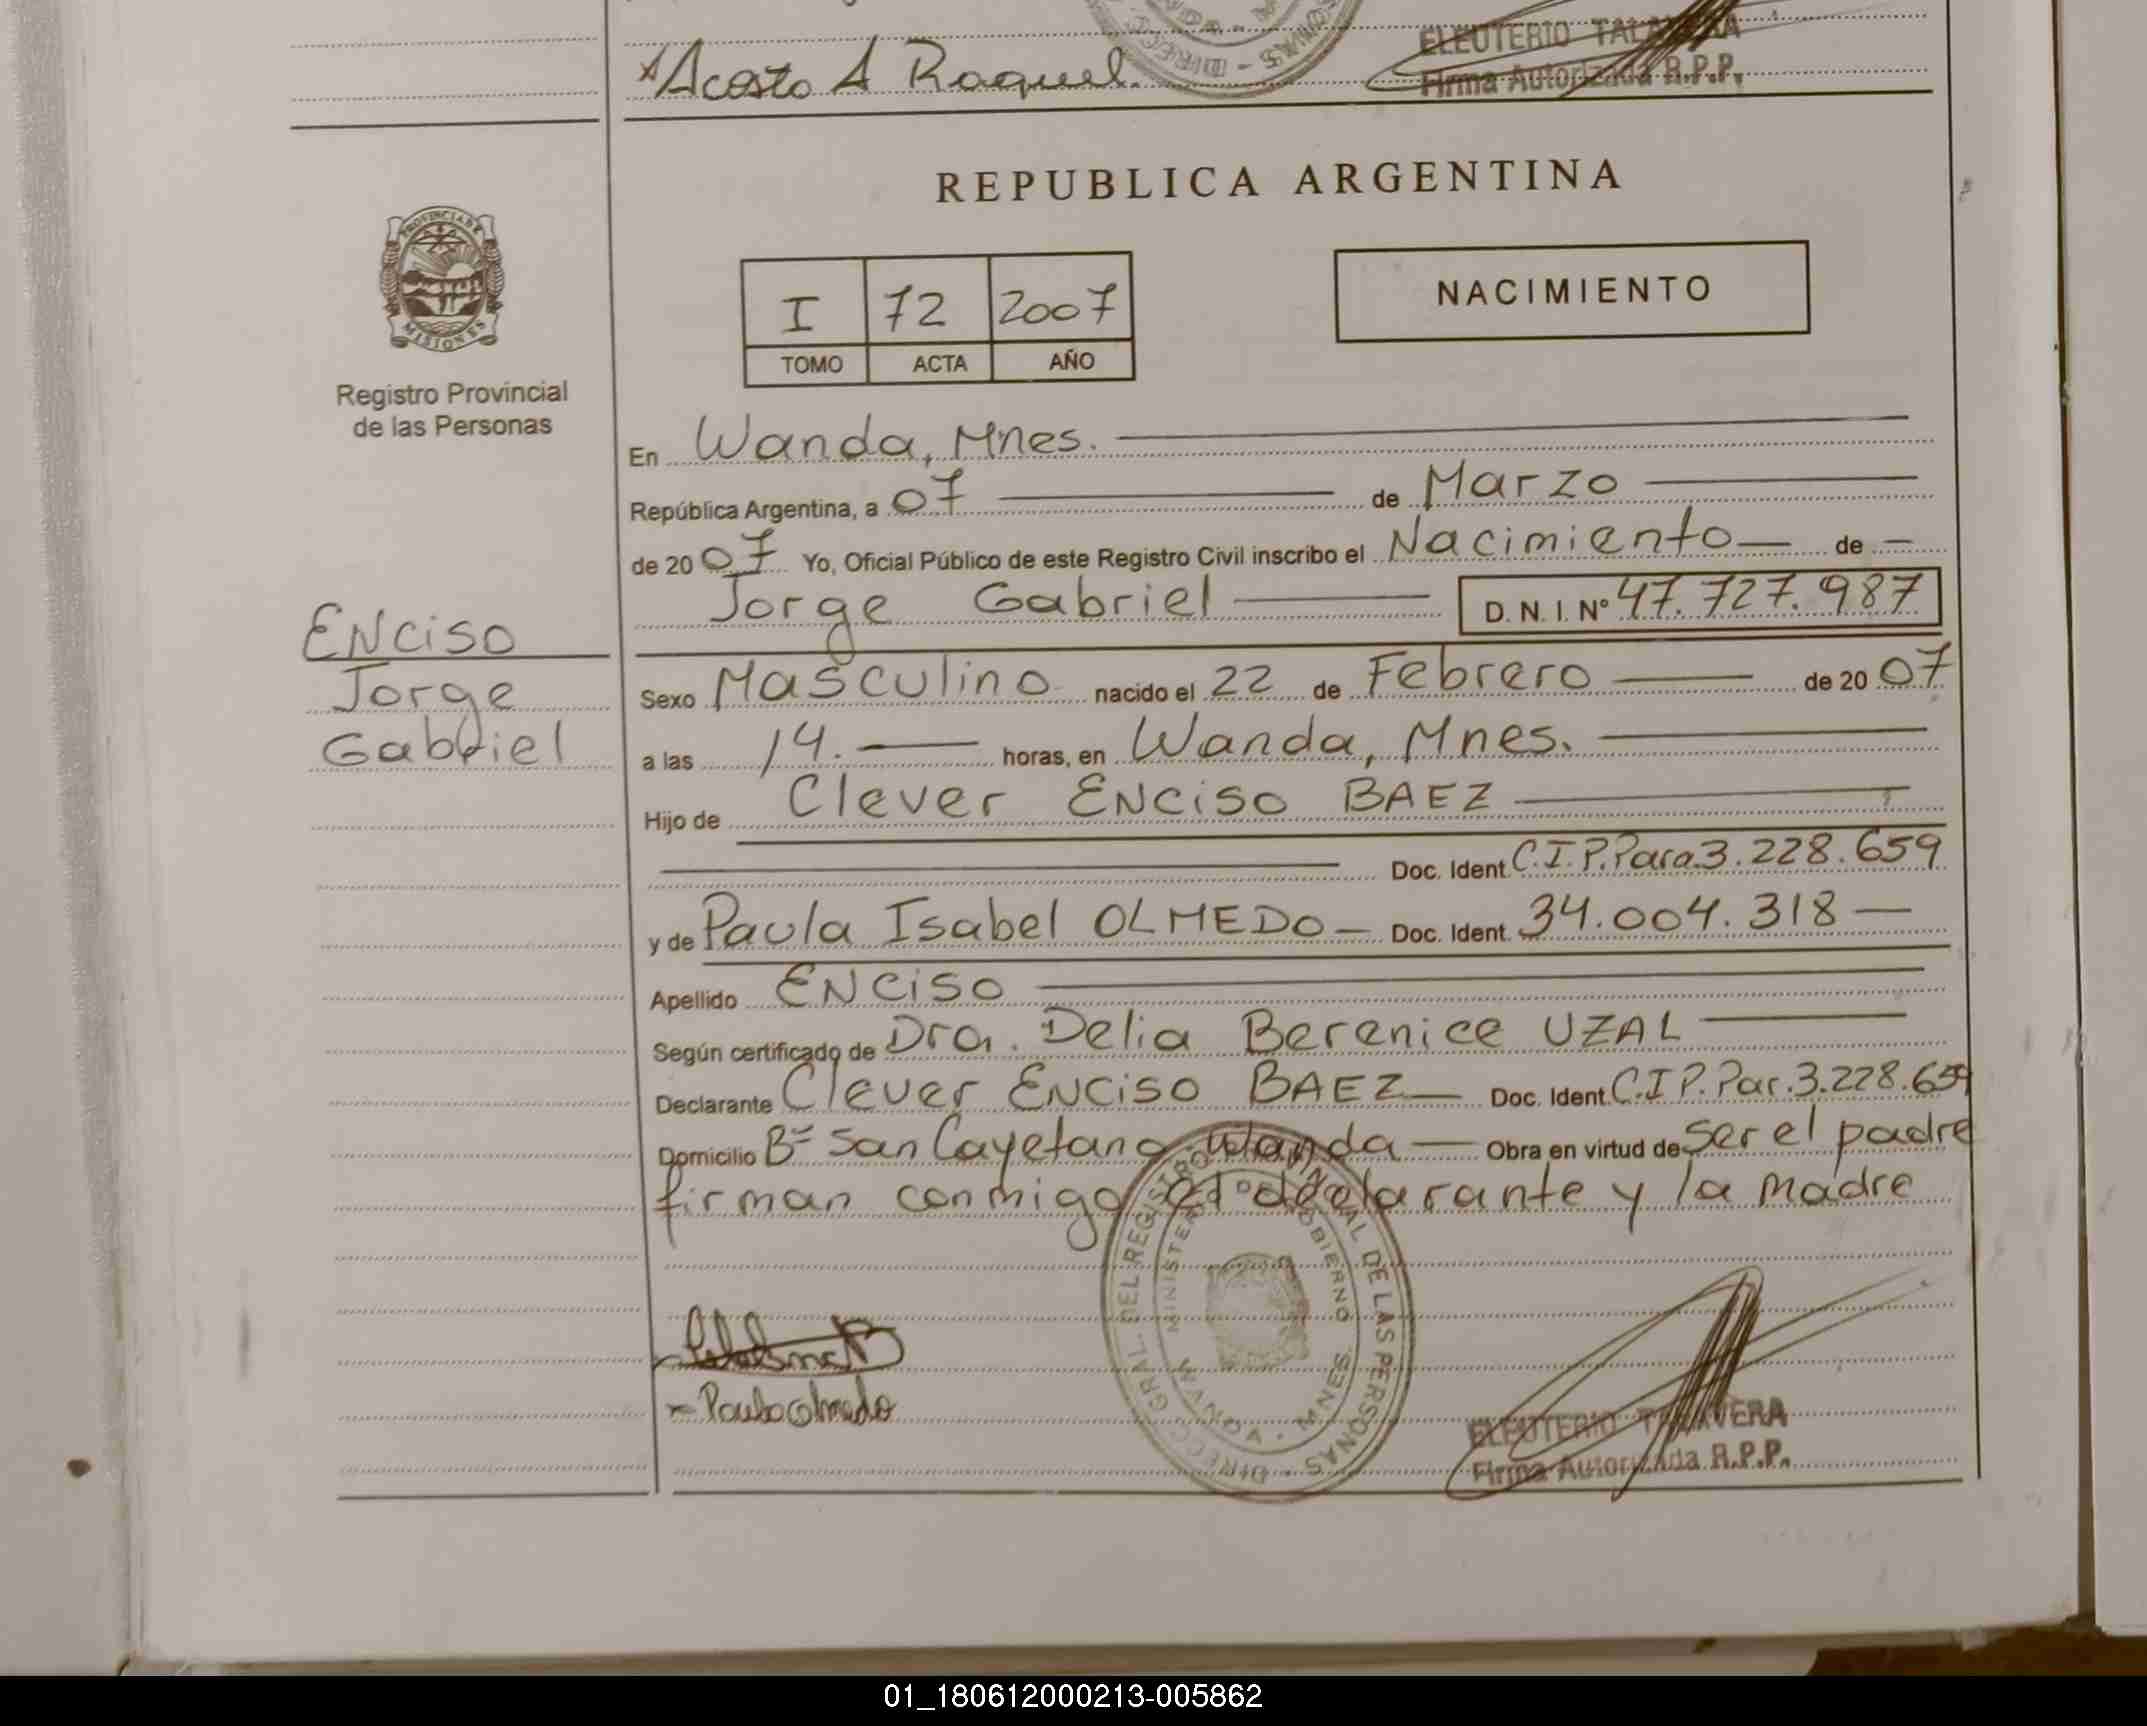 Acosta A Raquel.
ELEUTERIO TALAVERA
Firma Autorizada R.P.P.
REPUBLICA ARGENTINA
PROVINCIA DE
MISIONES
Registro Provincial
de las Personas
I 72 2007
TOMO ACTA AÑO
NACIMIENTO
En Wanda, Mnes.
República Argentina, a 07 de Marzo
de 2007 Yo, Oficial Público de este Registro Civil inscribo el Nacimiento de
Jorge Gabriel D.N.I. Nº 47.727.987
ENCISO
Jorge
Gabriel
Sexo Masculino nacido el 22 de Febrero de 2007
a las 14. horas, en Wanda, Mnes.
Hijo de Clever ENCISO BAEZ
Doc. Ident. C.I.P.Para.3.228.659
y de Paula Isabel OLMEDO Doc. Ident. 34.004.318
Apellido ENCISO
Según certificado de Dra. Delia Berenice UZAL
Declarante Clever ENCISO BAEZ Doc. Ident. C.I P. Par.3.228.659
Domicilio Bº San Cayetano Wanda Obra en virtud de ser el padre
firman conmigo el declarante y la madre
DIRECC. GRAL. DEL REGISTRO PROVINCIAL DE LAS PERSONAS
MINISTERIO GOBIERNO
WANDA - MNES
Paula Olmedo
ELEUTERIO TALAVERA
Firma Autorizada R.P.P.
01_180612000213-005862